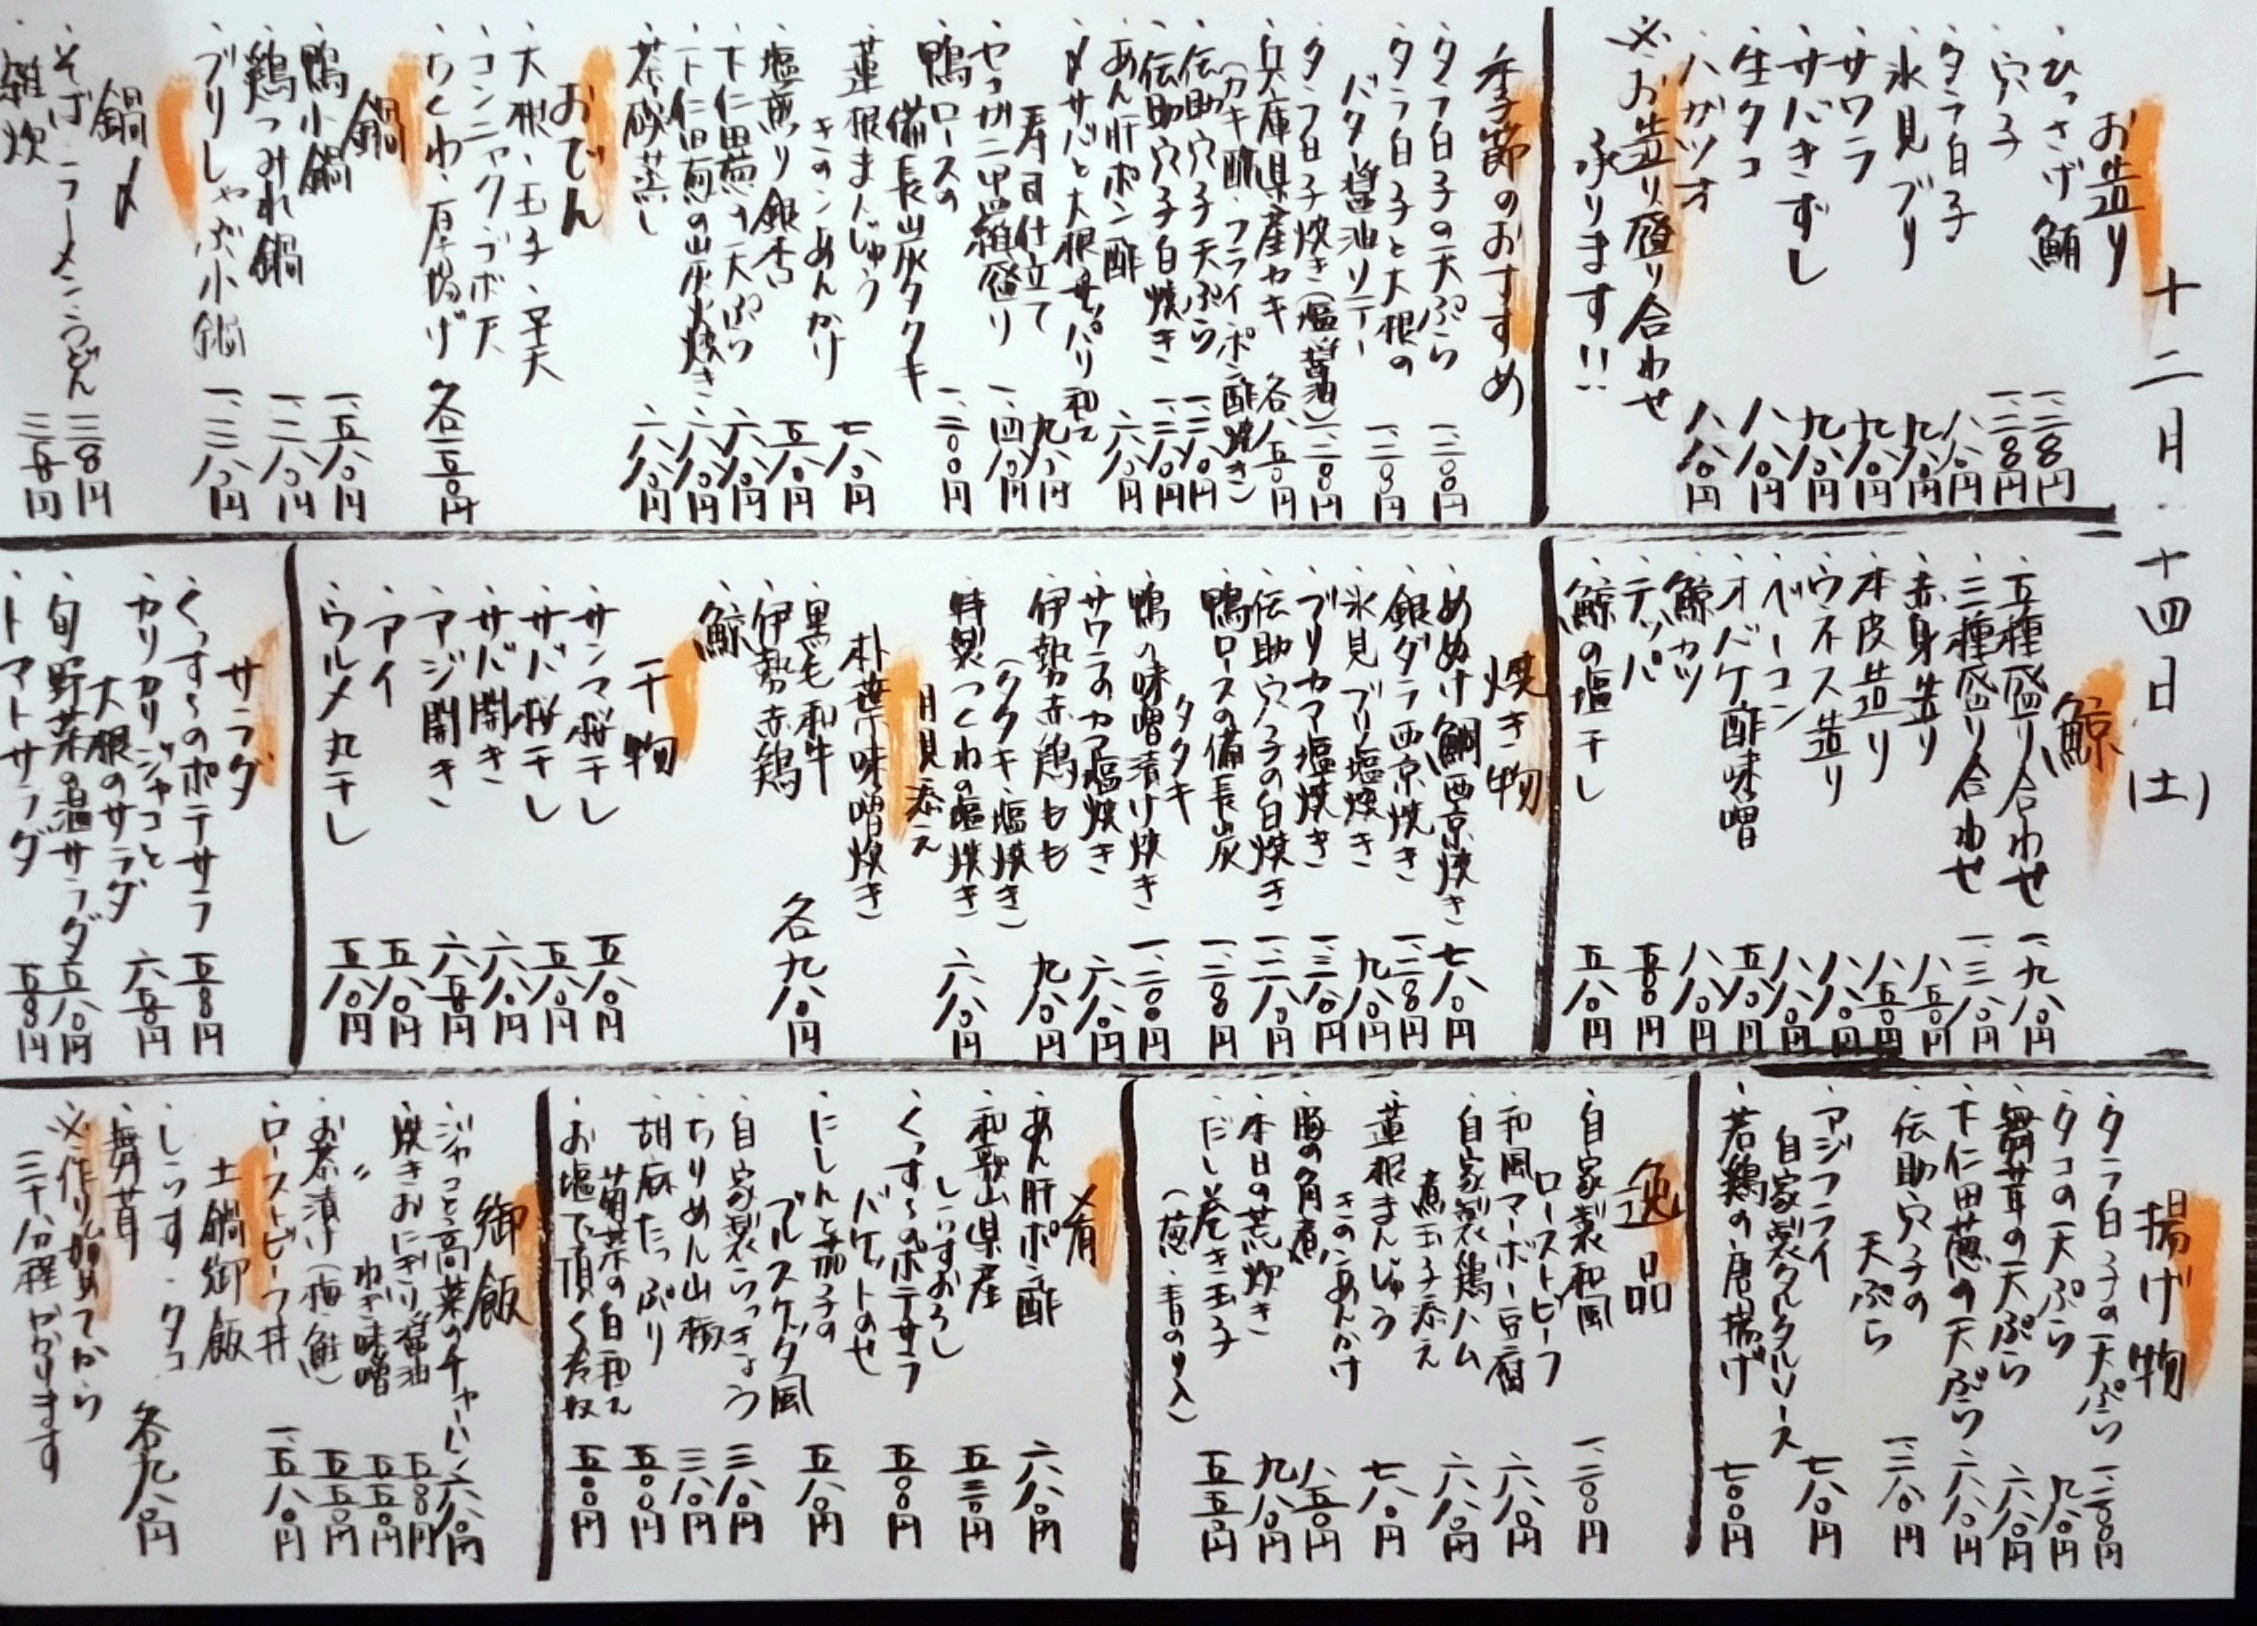 十二月十四日(土)
お造り
・ひっさげ鮪 一、二八〇円
・穴子 一、二八〇円
・タラ白子 八八〇円
・氷見ブリ 九八〇円
・サワラ 九八〇円
・サバきずし 九八〇円
・生タコ 八八〇円
・ハガツオ 八八〇円
※お造り盛り合わせ
承ります!!
季節のおすすめ
・タラ白子の天ぷら 一、二〇〇円
・タラ白子と大根の
バター醤油ソテー 一、二〇〇円
・タラ白子焼き(塩・醤油) 一、二〇〇円
・兵庫県産カキ 各八五〇円
(カキ酢・フライ・ポン酢焼き)
・伝助穴子天ぷら 一、三八〇円
・伝助穴子白焼き 一、三八〇円
・あん肝ポン酢 六八〇円
・〆サバと大根サッパリ和え 九八〇円
寿司仕立て
・セコガニ甲羅盛り 一、四八〇円
・鴨ロースの
備長炭タタキ 一、二〇〇円
・蓮根まんじゅう
きのこあんかけ 七八〇円
・塩煎り銀杏 五八〇円
・下仁田葱の天ぷら 六八〇円
・下仁田葱の炭火焼き 六八〇円
・茶碗蒸し 六八〇円
おでん
・大根・玉子・平天
・コンニャク・ゴボ天
・ちくわ・厚揚げ 各二五〇円
鍋
・鴨小鍋 一、五八〇円
・鶏つみれ鍋 一、二八〇円
・ブリしゃぶ小鍋 一、三八〇円
鍋〆
・そば・ラーメン・うどん 三八〇円
・雑炊 三五〇円
鯨
・五種盛り合わせ 一、九八〇円
・三種盛り合わせ 一、三八〇円
・赤身造り 八五〇円
・本皮造り 八五〇円
・ウネス造り 八八〇円
・ベーコン 八八〇円
・オバケ酢味噌 五八〇円
・鯨カツ 八八〇円
・テッパ 五八〇円
・鯨の塩干し 五八〇円
焼き物
・めぬけ鯛西京焼き 七八〇円
・銀ダラ西京焼き 一、二八〇円
・氷見ブリ塩焼き 九八〇円
・ブリカマ塩焼き 一、三八〇円
・伝助穴子の白焼き 一、三八〇円
・鴨ロースの備長炭
タタキ 一、二〇〇円
・鴨の味噌漬け焼き 一、二〇〇円
・サワラのカマ塩焼き 六八〇円
・伊勢赤鶏もも 九八〇円
(タタキ・塩焼き)
・特製つくねの塩焼き 六八〇円
月見添え
朴葉味噌焼き
・黒毛和牛
・伊勢赤鶏 各九八〇円
・鯨
干物
・サンマ桜干し 五八〇円
・サバ桜干し 五八〇円
・サバ開き 六八〇円
・アジ開き 六五〇円
・アイ 五八〇円
・ウルメ丸干し 五八〇円
サラダ
・くっすーのポテサラ 五〇〇円
・カリカリジャコと
大根のサラダ 六五〇円
・旬野菜の温サラダ 五八〇円
・トマトサラダ 五五〇円
揚げ物
・タラ白子の天ぷら 一、二〇〇円
・タコの天ぷら 九八〇円
・舞茸の天ぷら 六八〇円
・下仁田葱の天ぷら 六八〇円
・伝助穴子の
天ぷら 一、三八〇円
・アジフライ
自家製タルタルソース 七八〇円
・若鶏の唐揚げ 七〇〇円
逸品
・自家製和風
ローストビーフ 一、二〇〇円
・和風マーボー豆腐 六八〇円
・自家製鶏ハム
煮玉子添え 六八〇円
・蓮根まんじゅう
きのこあんかけ 七八〇円
・豚の角煮 八五〇円
・本日の荒炊き 九八〇円
・だし巻き玉子 五五〇円
(葱・青のり入)
〆肴
・あん肝ポン酢 六八〇円
・和歌山県産
しらすおろし 五三〇円
・くっすーのポテサラ
バケットのせ 五〇〇円
・にしんと茄子の
ブルスケッタ風 五八〇円
・自家製らっきょう 三八〇円
・ちりめん山椒 三八〇円
・胡麻たっぷり
菊菜の白和え 五〇〇円
・お塩で頂く寄せ奴 五〇〇円
御飯
・ジャコと高菜のチャーハン 六八〇円
・焼きおにぎり醤油 五〇〇円
・〃 ねぎ味噌 五五〇円
・お茶漬け(梅・鮭) 五五〇円
・ローストビーフ丼 一、五八〇円
土鍋御飯
・しらす・タコ
・舞茸 各九八〇円
※作り始めてから
三十分程かかります